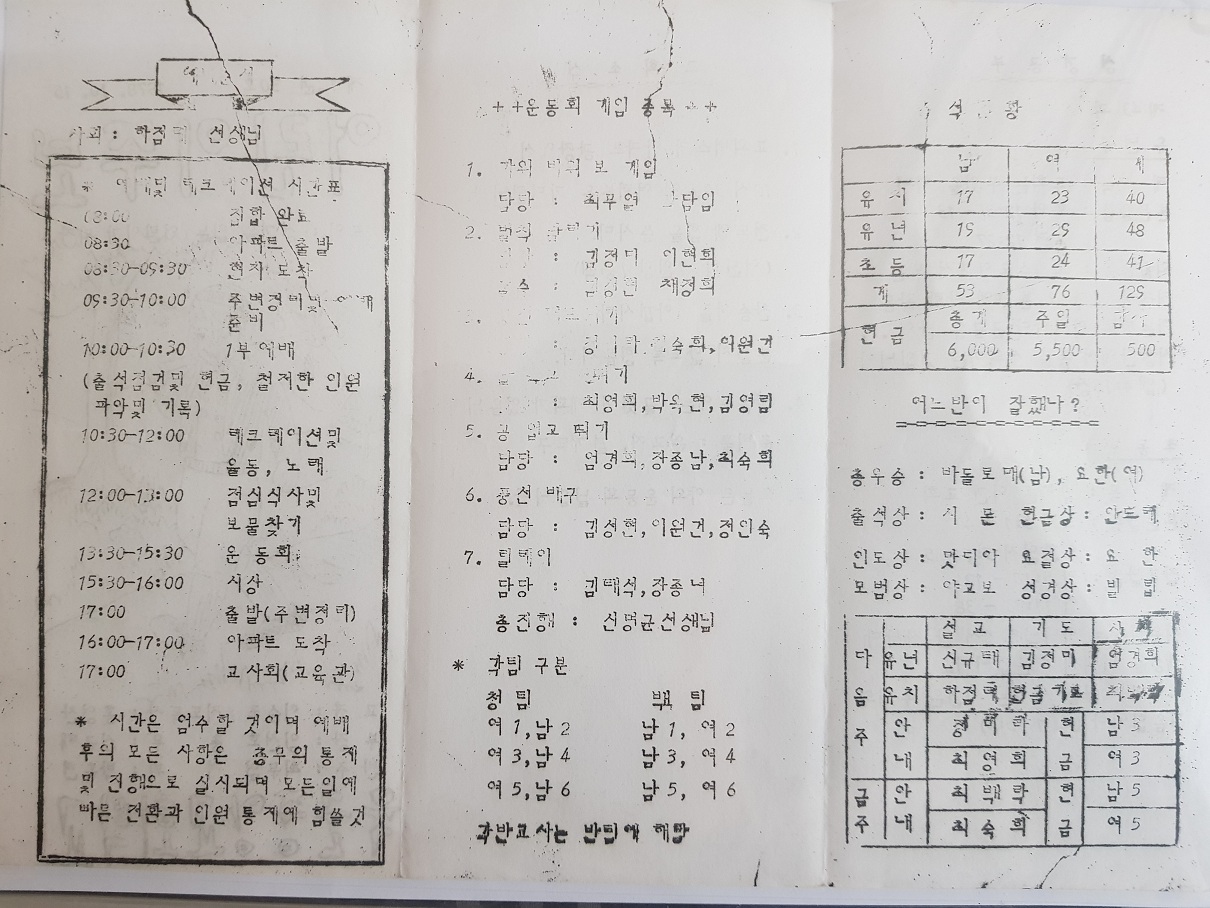 사회 : 하점태 선생님
※ 예배및 레크레이션 시간표
08:00 집합 완료
08:30 아파트 출발
08:30-09:30 현지 도착
09:30-10:00 주변정비및 예배
준비
10:00-10:30 1부 예배
(출석점검및 헌금, 철저한 인원
파악및 기록)
10:30-12:00 레크레이션및
율동, 노래
12:00-13:00 점심식사및
보물찾기
13:30-15:30 운 동회
15:30-16:00 시상
17:00 출발(주변정리)
16:00-17:00 아파트 도착
17:00 교사회(교육관)
* 시간은 엄수할 것이며 예배
후의 모든 사항은 총무의 통제
및 진행으로 실시되며 모든일에
빠른 전환과 인원 통제에 힘쓸것
++운동회 게임 종목++
1. 가위 바위 보 게임
담당 : 최무열
2.
: 김정미 이현희
: 채경희
3.
: 이원건
4.
: 최영희,박옥현,김영림
5. 공 입고 뛰기
담당 : 엄경희,장종남,최숙희
6. 풍선 배구
담당 : 김성현,이원건,정인숙
7. 릴레이
담당 : 김태석,장종녀
총진행 : 신명균선생님
* 각팀 구분
청 팀 백 팀
여 1,남 2 남 1, 여 2
여 3,남 4 남 3, 여 4
여 5,남 6 남 5, 여 6
각반교사는 반팀에 해당
석 현황
남 여 계
유 치 17 23 40
유 년 19 29 48
초 등 17 24 41
계 53 76 129
헌금 총계 주일 감사
6,000 5,500 500
어느반이 잘했나?
총우승 : 바돌로매(남), 요한(여)
출석상 : 시 몬 헌금상 : 안드레
인도상 : 맛디아 요절상 : 요 한
모범상 : 야고보 성경상 : 빌 립
설 교 기 도 사 회
다 유년 신규태 김정미 엄경희
음 유치 하점태 헌금기도
주 안 헌 남 3
내 최영희 금 여 3
금 안 최백락 헌 남 5
주 내 최숙희 금 여 5